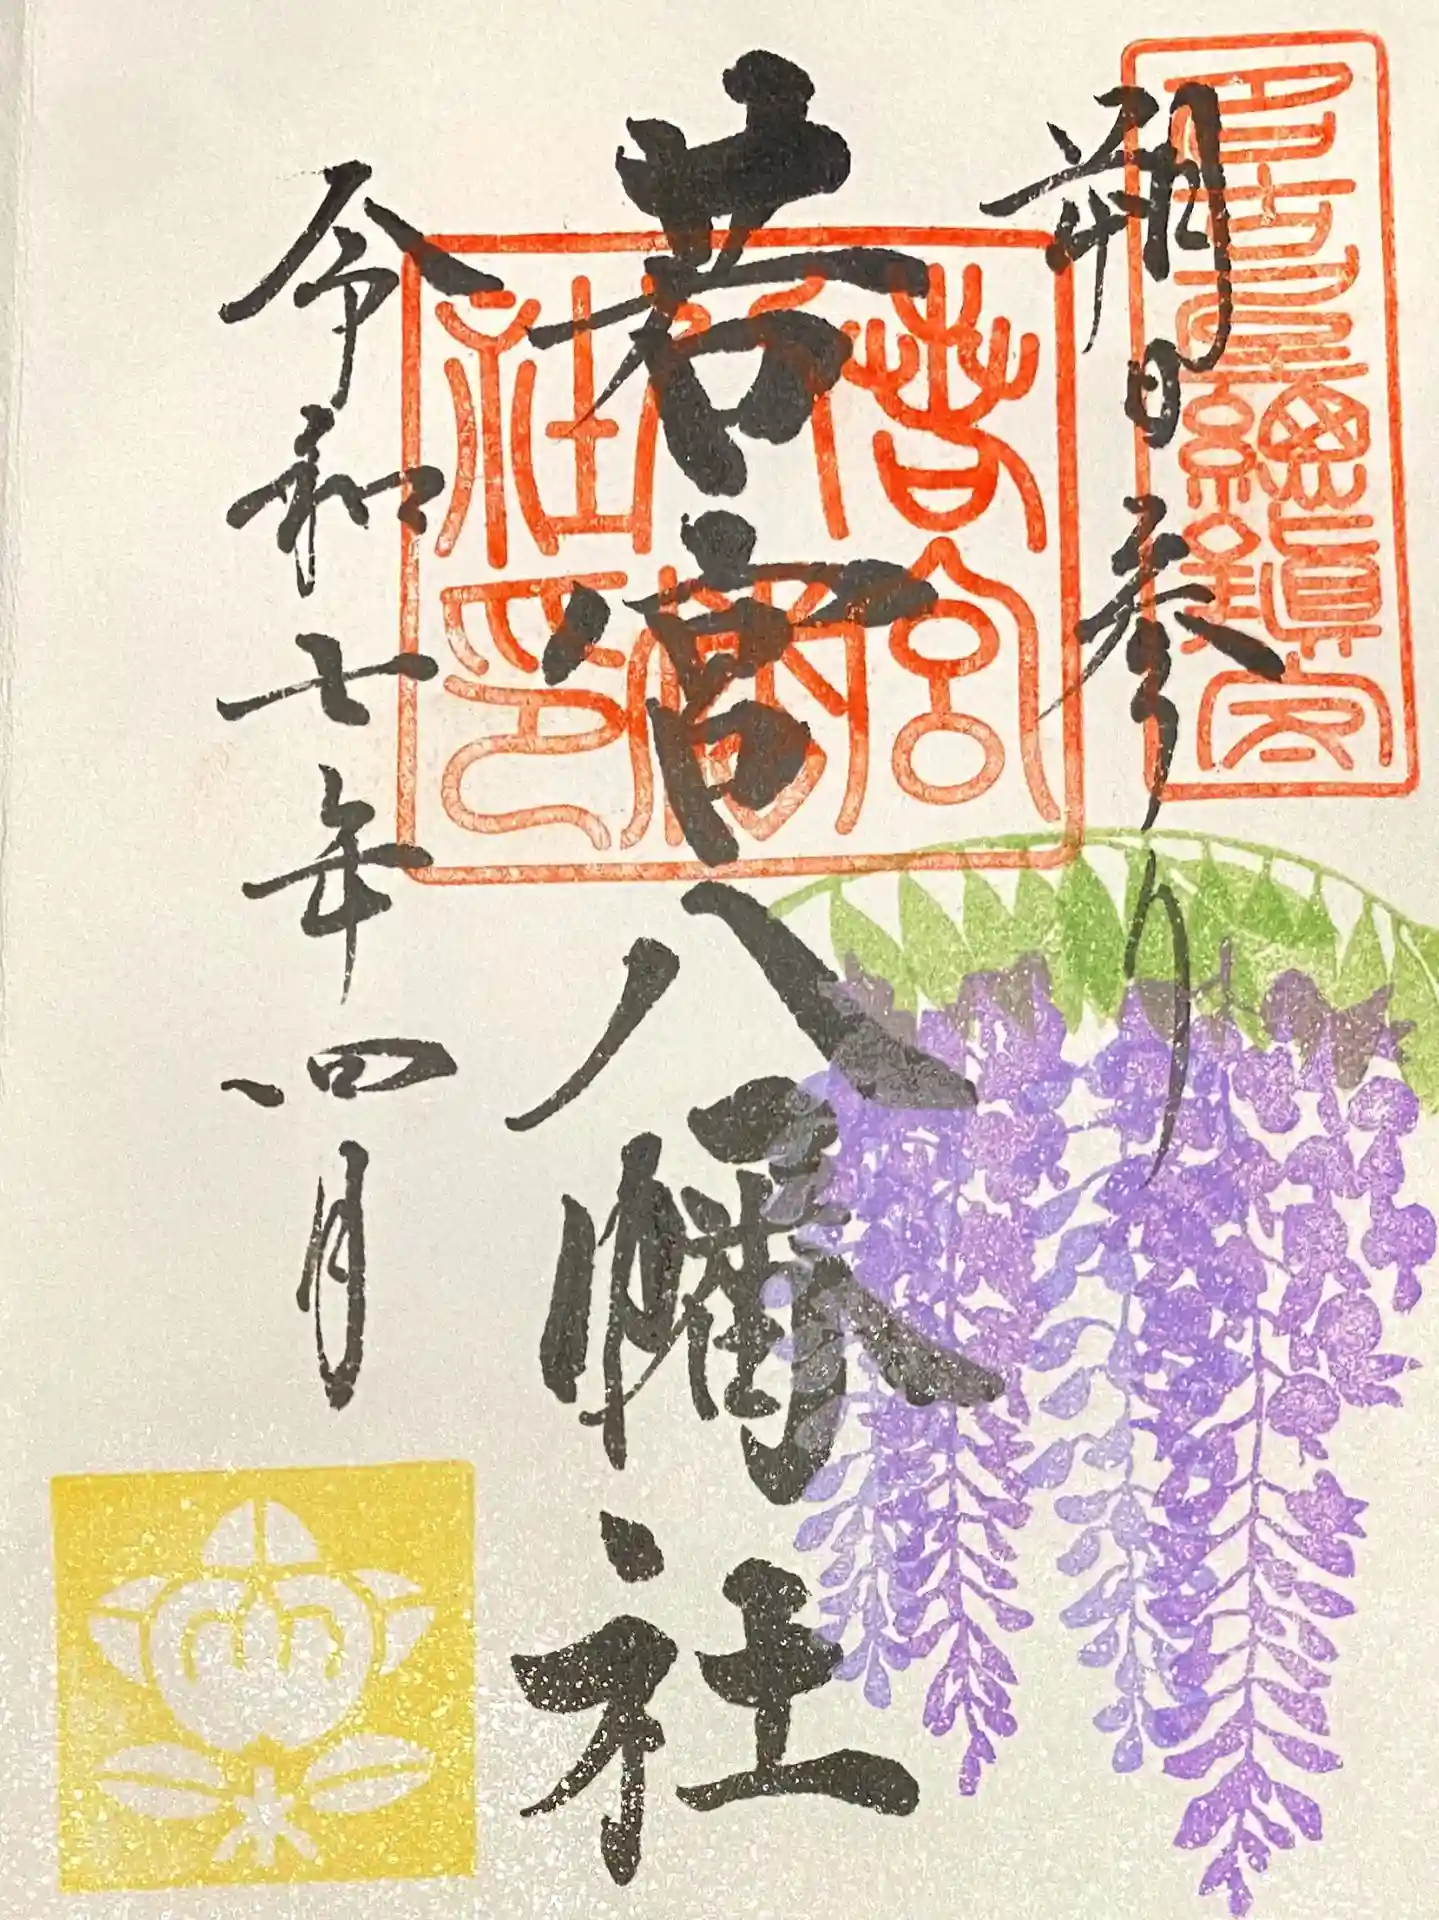 名古屋總鎮守
朔日参り
若宮八幡社
若宮
八幡
社印
令和七年四月